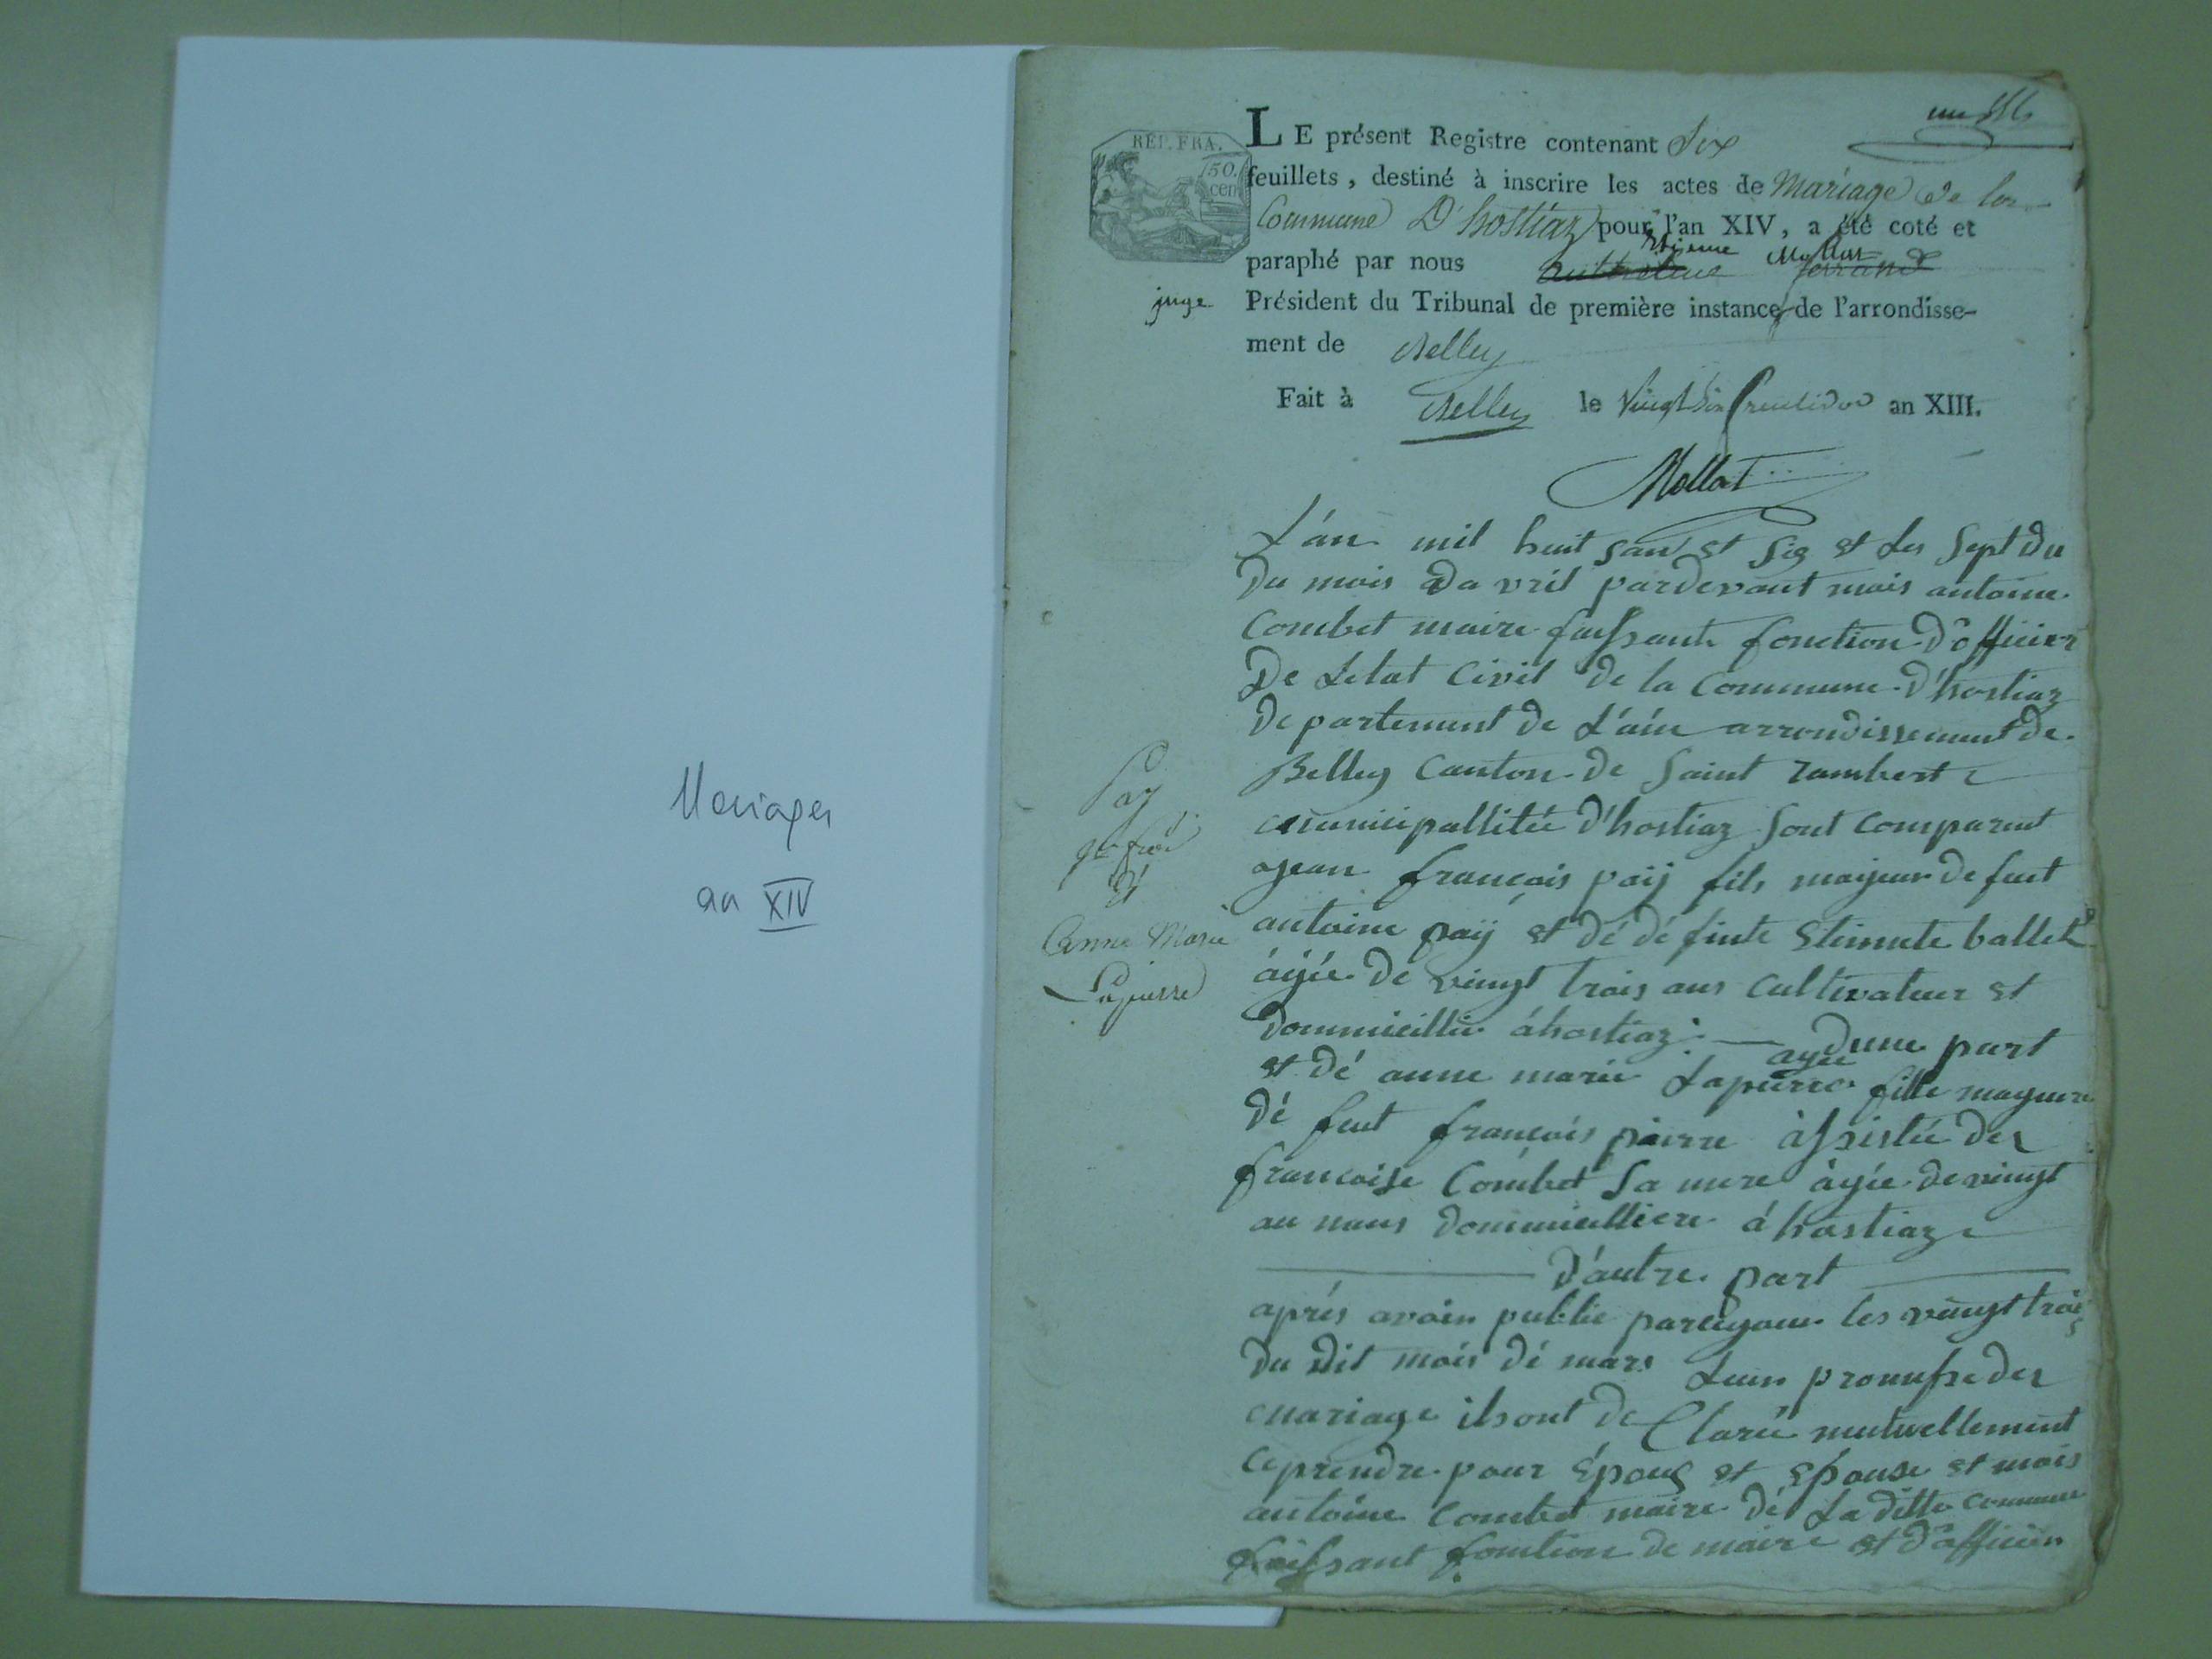 Mariages
an XIV
RÉP. FRA.
50.
cen
LE présent Registre contenant Six
feuillets, destiné à inscrire les actes de Mariage de la
Commune D'hostiaz pour l'an XIV, a été coté et
Etienne Mollat
paraphé par nous
juge
Président du Tribunal de première instance de l'arrondisse-
ment de Belley
Fait à Belley le Vingt Six fructidor an XIII.
Mollat
L'an mil huit sant et sis et les sept du
du mois da vril pardevant mois antoine
Combet maire faissante fonction d'officier
De Letat Civil de la Commune d'hostiaz
departement de L'ain arrondissement de
Belley Canton de Saint rambert
municipallitée d'hostiaz sont comparut
jean françois paÿ fils majeur de feut
antoine paÿ et dé définte Etiennete ballet
âgée de vingt trois ans cultivateur et
dommicillie à hostiaz d'une part
et dé anne marie Lapierre agee fille mayeure
dé feut françois pierre assistée der
francoise Combet sa mere âgée de vingt
au nans dommicilliere á hostiaz
d'autre part
aprés avoir publie les vingt trois
du dit mois dé mars Leur promesse der
mariage ils ont de Clarée mutuellement
ce prendre pour Épous et Épouse et mois
antoine Combet maire dé La ditte commune
faissant fontion de maire et d'officier
Paÿ
jn frois
&
Anne Marie
Lapierre